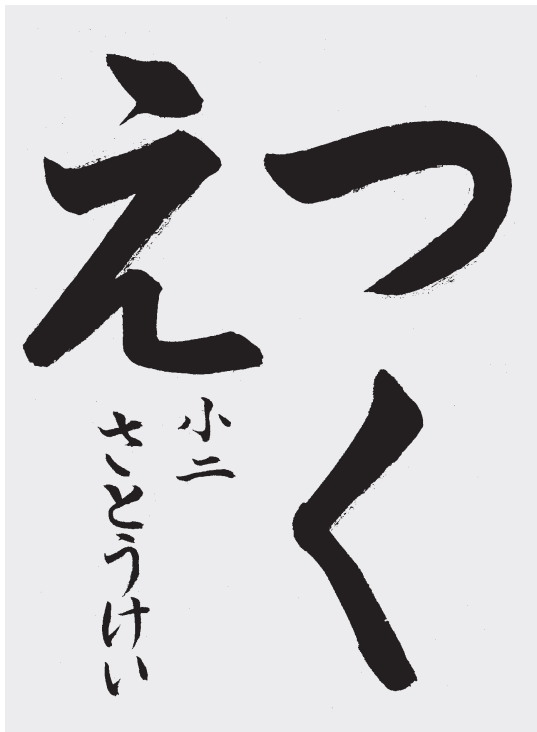 つく
え
小二
さとうけい